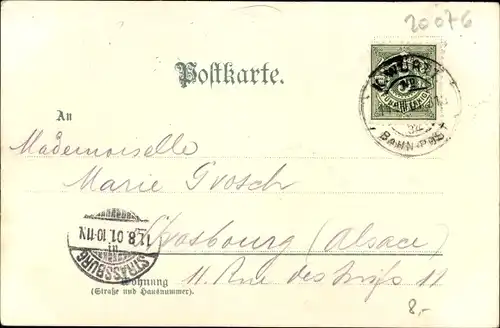 20076
Postkarte.
K. WÜRTT.
BAHNPOST
An
Mademoiselle
Marie Grosch
Strasbourg (Alsace)
11. Rue des Juifs 11
STRASSBURG
11.8.01.10-11N.
Wohnung
(Straße und Hausnummer).
8,-